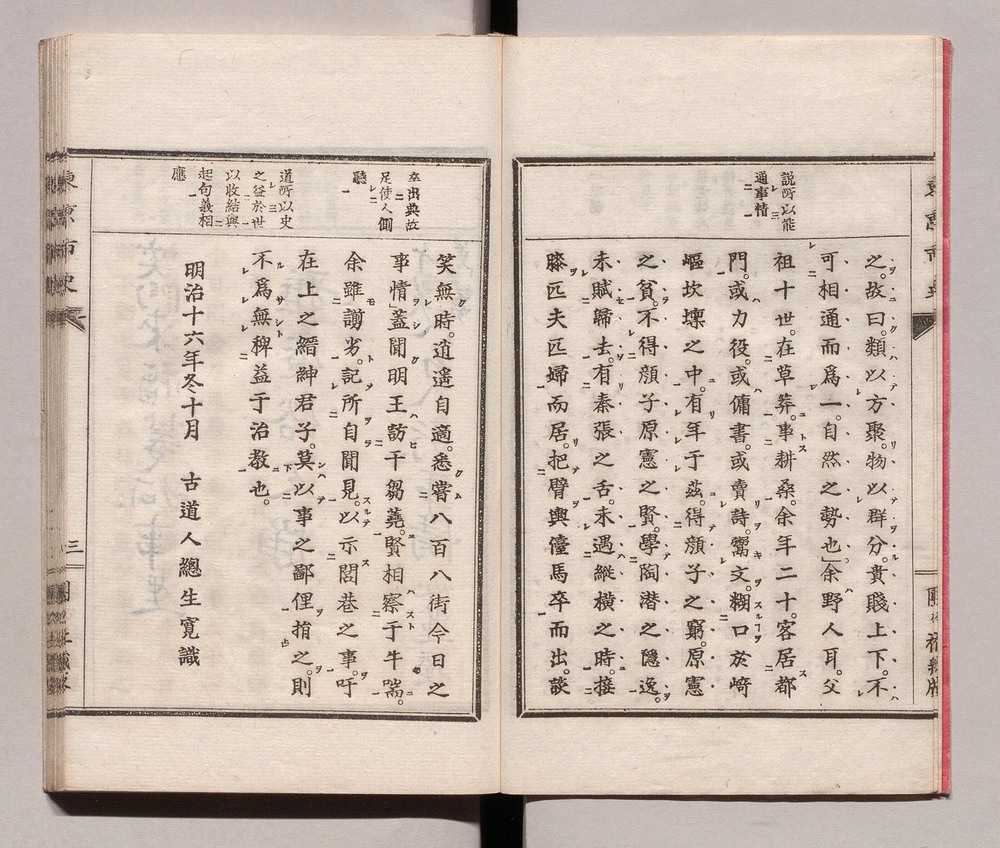 說所以能
通事情
之。故曰。類以方聚。物以群分。貴賤上下。不
可相通而爲一。自然之勢也」余野人耳。父
祖十世。在草莽。事耕桑。余年二十。客居都
門。或力役。或傭書。或賣詩。鬻文。糊口於﨑
嶇坎壈之中。有年于茲。得顏子之窮。原憲
之貧。不得顏子原憲之賢。學陶潜之隱逸。
未賦歸去。有秦張之舌。未遇縱橫之時。接
膝匹夫匹婦而居。把臂輿儓馬卒而出。談
卒出典故
足使人倒
聽
道所以史
之益於世
以收結與
起句義相
應
笑無時。逍遥自適。悉嘗八百八街今日之
事情」蓋聞明王訪于芻蕘。賢相察于牛喘。
余雖謭劣。記所自聞見。以示閭巷之事。吁
在上之縉紳君子。莫以事之鄙俚措之。則
不爲無稗益于治教也。
明治十六年冬十月 古道人總生寬識
東京市史
三